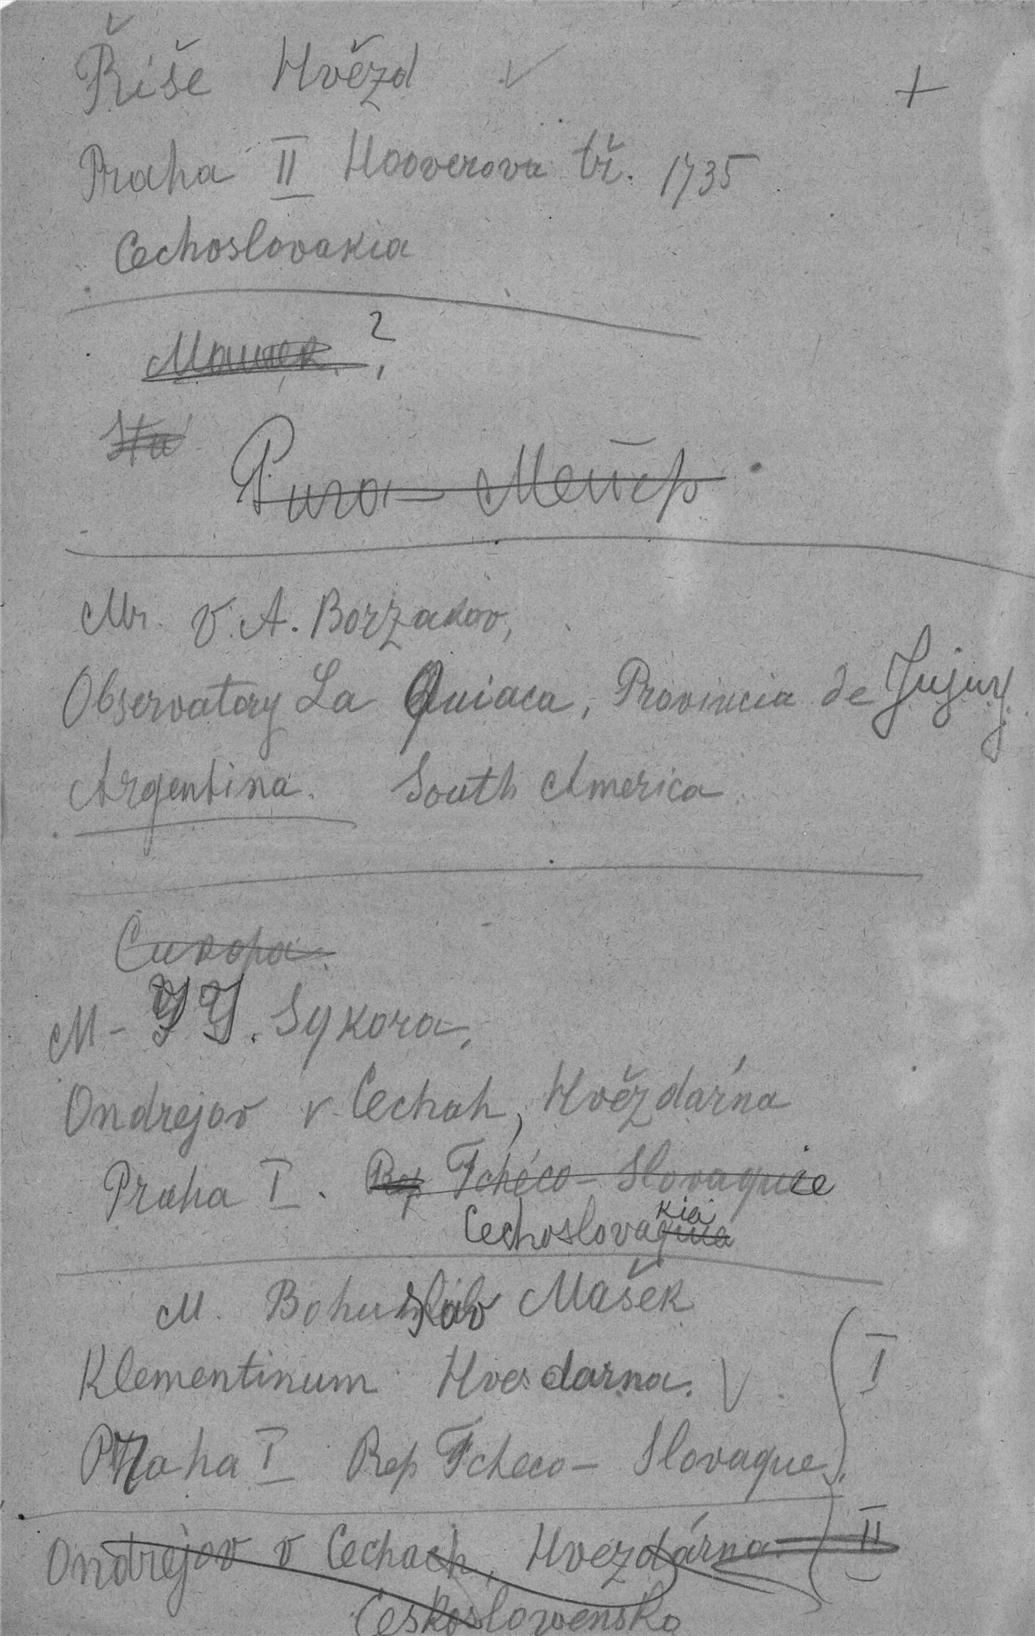 Říše Hvězd
Praha II Hooverova tř. 1735
Cechoslovakia
?
Mr. V. A. Borzakov,
Observatory La Quiaca, Provincia de Jujuy
Argentina. South America
Europa
M- J J. Sykora,
Ondrejov v Cechah, Hvězdárna
Praha I. Rep Tchéco-Slovaquie
Cechoslovakia
M. Bohuslav Mašek
Klementinum Hvesdarna. I
Praha I Rep Tcheco-Slovaque
Ondrejov v Cechach, Hvezdárna II
Československo